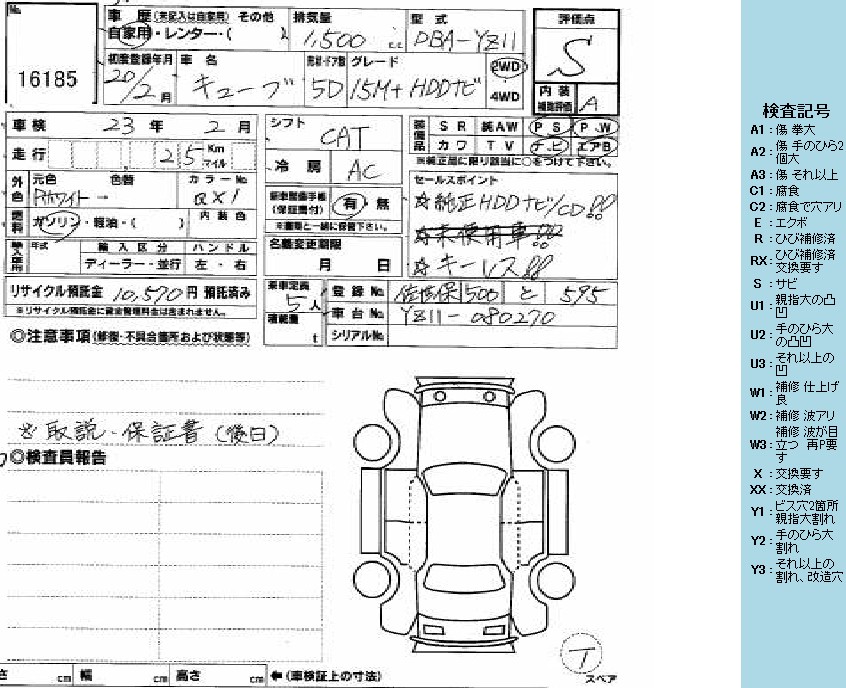 No.
16185
車歴(未記入は自家用) その他
自家用・レンター・( )
排気量
1,500 cc
型式
DBA-YZ11
評価点
S
初度登録年月
20/2月
車名
キューブ
形状・ドア数
5D
グレード
15M+HDDナビ
2WD
4WD
内装
補助評価
A
車検 23年 2月
走行 25 Km マイル
外色 元色 色替 カラーNo.
Pホワイト→ QX1
燃料 ガソリン・軽油・( ) 内装色
輸入車用 年式 輸入区分 ハンドル
ディーラー・並行 左・右
リサイクル預託金 10,570円 預託済み
※リサイクル預託金に資金管理料金は含まれません。
シフト
CAT
冷房
AC
新車整備手帳
(保証書付)
有・無
※書類と一緒に保管下さい。
名義変更期限
月 日
乗車定員
5人
積載量
t
装備品 SR 純AW PS PW
カワ TV ナビ エアB
※純正品に限り該当に○をつけて下さい。
セールスポイント
☆純正HDDナビ/CD!!
☆未使用車!!
☆キーレス!!
登録No. 佐世保 500 と 595
車台No. YZ11-080270
シリアルNo.
◎注意事項(修復・不具合箇所および状態等)
※取説・保証書(後日)
◎検査員報告
さ cm 幅 cm 高さ cm ←(車検証上の寸法)
T
スペア
検査記号
A1:傷 拳大
A2:傷 手のひら2
個大
A3:傷 それ以上
C1:腐食
C2:腐食で穴アリ
E:エクボ
R:ひび補修済
RX:ひび補修済
交換要す
S:サビ
U1:親指大の凸
凹
U2:手のひら大
の凸凹
U3:それ以上の
凹
W1:補修 仕上げ
良
W2:補修 波アリ
W3:補修 波が目
立つ 再P要
す
X:交換要す
XX:交換済
Y1:ビス穴2箇所
親指大割れ
Y2:手のひら大
割れ
Y3:それ以上の
割れ、改造穴